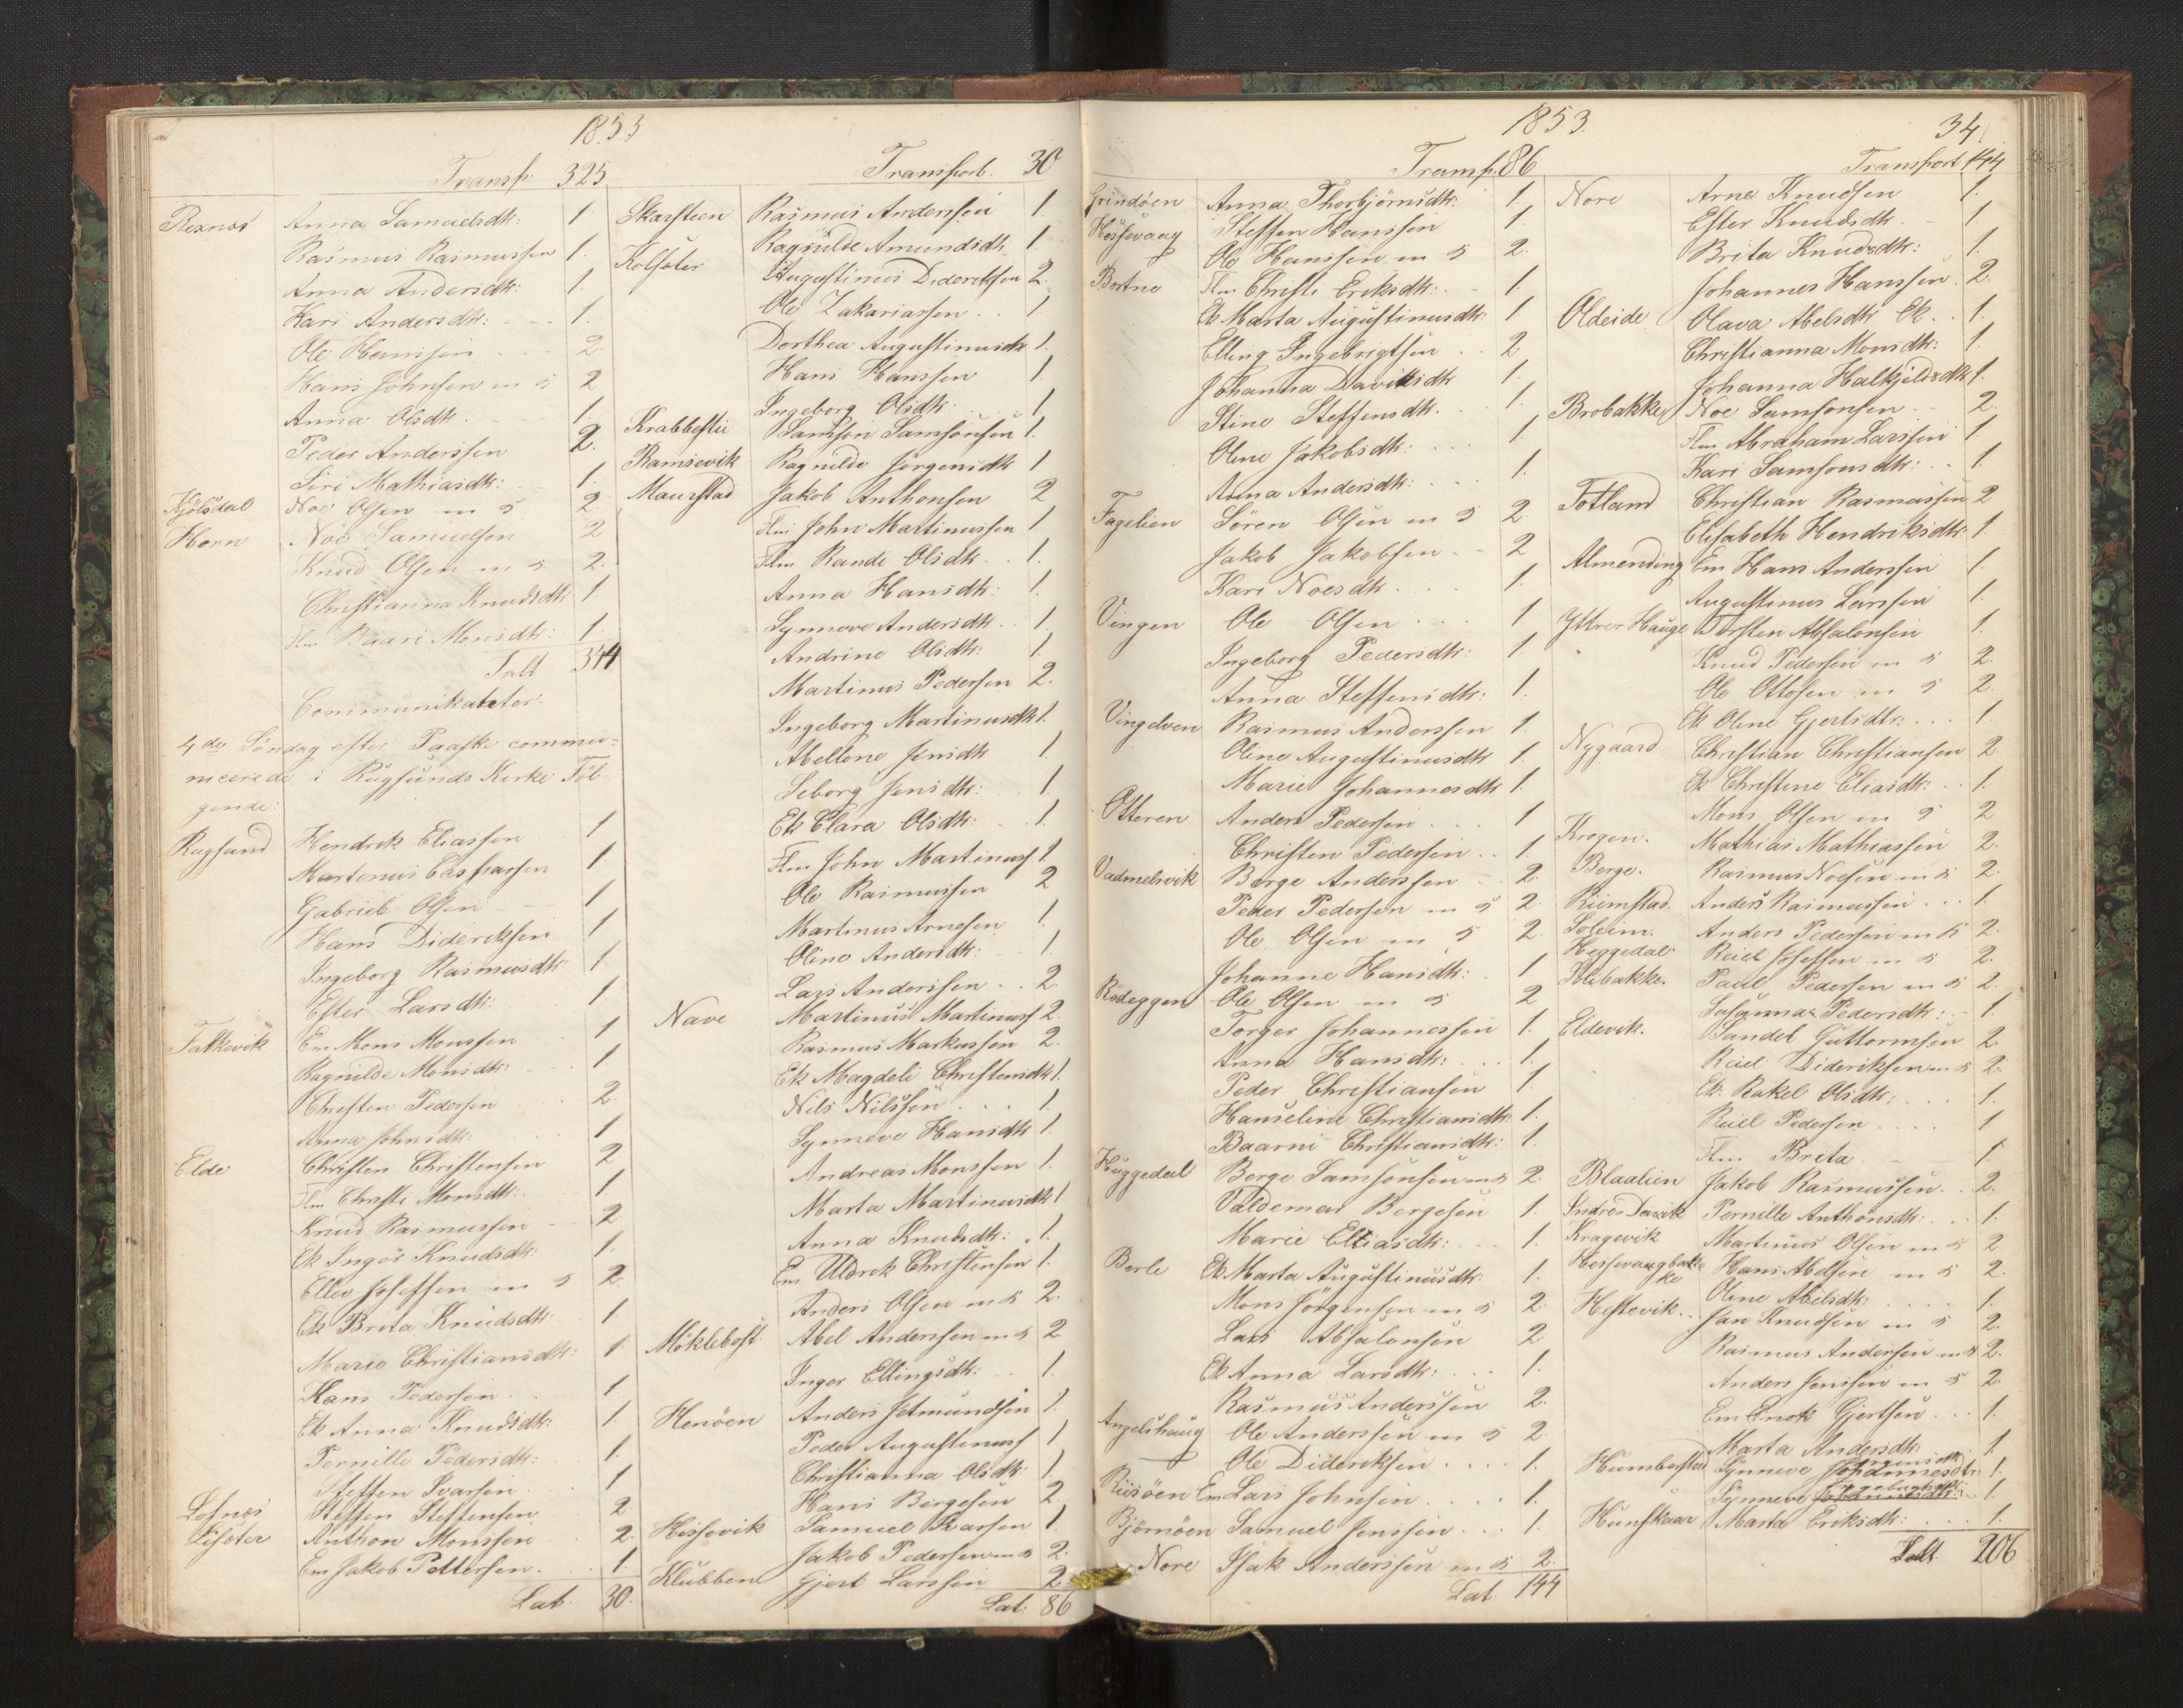 1853
Transp. 325
Rexnæs Anna Samuelsdtr: 1.
Rasmus Rasmussen 1.
Anna Andersdtr: 1.
Kari Andersdtr: 1.
Ole Hanssen 2
Hans Johnsen m s 2
Anna Olsdtr. 1.
Peder Anderssen 2.
Siri Mathiasdtr: 1.
Kjölsdal Noe Olsen m s 2
Horn Noe Samuelsen 2
Knud Olsen m s 2.
Christianna Knudsdtr 1
Flm Baari Monsdtr: 1.
Talt 344
Communikanter.
4de Söndag efter Paaske commu=
nicerede i Rugsunds Kirke Föl-
gende:
Rugsund Hendrik Eliassen 1
Martinus Casparsen 1
Gabriel Olsen 1
Hans Dideriksen 1.
Ingeborg Rasmusdtr 1.
Ester Larsdtr: 1.
Falkevik Em Mons Monssen 1
Ragnilde Monsdtr: 1
Christen Pedersen 2.
Anna Johnsdtr: 1
Elde Christen Christensen 2
Flm Christi Monsdtr: 1
Knud Rasmussen 2
Ek Inger Knudsdtr: 1.
Ellev Josefsen m s 2.
Ek Brita Knudsdtr 1.
Marie Christiansdtr: 1
Hans Pedersen 1
Ek Anna Knudsdtr: 1.
Pernille Pedersdtr: 1.
Steffen Ivarsen 1
Lofnæs Steffen Steffensen 2
Lisæter Anthon Monssen 2.
Em Jakob Pettersen. 1
Lat. 30.
Transport. 30
Skarsteen Rasmus Anderssen 1.
Kolsæter Ragnilde Amundsdtr 1
Augustinus Dideriksen 2.
Ole Zakariassen 1
Dorthea Augustinusdtr 1.
Hans Hanssen 1.
Ingeborg Olsdtr. 1
Krabbestii Samson Samsonsen 1.
Ramsevik Ragnilde Jørgensdtr 1
Maurstad Jakob Anthonsen 2
Flm John Martinussen 1
Flm Rande Olsdtr 1.
Anna Hansdtr: 1.
Synneve Andersdtr. 1.
Andrine Olsdtr: 1.
Martinus Pedersen 2.
Ingeborg Martinusdtr 1.
Abellone Jensdtr 1.
Seborg Jensdtr: 1
Ek Clara Olsdtr: 1.
Flm John Martinuss 1
Ole Rasmussen 2
Martinus Arnesen 1.
Oline Andersdtr: 1.
Lars Anderssen 2.
Nave Martinus Martinuss 2.
Rasmus Markussen 2.
Ek Magdeli Christensdtr 1.
Nils Nilssen 1.
Synneve Hansdtr 1.
Andreas Monssen 1.
Marta Martinusdtr 1
Anna Knudsdtr: 1.
Em Uldrek Christensen 1.
Anders Olsen m s 2.
Möklebost Abel Anderssen m s 2
Inger Ellingsdtr: 1.
Henöen Anders Jetmundsen 1.
Peder Augustinuss 1
Christianna Olsdtr 1
Hans Børgesen 2.
Hessevik Samuel Ivarsen 1.
Jakob Pedersen m s 2
Klubben Gjert Larssen 2
Lat: 86
1853. 34
Transp. 86
Grindöen Anna Thorbjörnsdtr: 1.
Hessevaag Steffen Hanssen 1.
Ole Hanssen m s 2.
Bortne Flm Christi Eriksdtr: 1.
Ek Marta Augustinusdtr: 1
Elling Ingebrigtsen 2
Johanna Daviksdtr 1.
Stine Steffensdtr. 1.
Oline Jakobsdtr: 1.
Anna Andersdtr: 1.
Fagelien Sören Olsen m s 2.
Jakob Jakobsen 2
Kari Noesdtr 1.
Vingen Ole Olsen 1
Ingeborg Pedersdtr: 1
Anna Steffensdtr: 1.
Vingelven Rasmus Anderssen 1.
Oline Augustinusdtr 1.
Marie Johannesdtr 1.
Otteren Anders Pedersen 1
Christen Pedersen 1.
Vadmelsvik Børge Anderssen 2.
Peder Pedersen m s 2.
Ole Olsen m s 2.
Johanne Hansdtr: 1
Rödeggen Ole Olsen m s 2
Torger Johannessen 1.
Anna Hansdtr: 1.
Peder Christiansen 1.
Hanseline Christiansdtr: 1.
Baarni Christiansdtr: 1.
Huggedal Børge Samsonsen m s 2.
Valdemar Børgesen 1.
Marie Eliasdtr: 1.
Berle Ek Marta Augustinusdtr. 1.
Mons Jörgensen m s 2.
Lars Absalonsen 2
Ek Anna Larsdtr: 1.
Rasmus Anderssen 2.
Angelshaug Ole Anderssen m s 2
Ole Dideriksen 1.
Risöen Em Lars Johnsen 1.
Björnöen Samuel Jenssen 1.
Nore Isak Anderssen m s 2.
Lat. 144
Transport 144
Nore Arne Knudsen 1.
Ester Knudsdtr. 1
Brita Knudsdtr: 1.
Johannes Hanssen 2.
Oldeide Olava Abelsdtr Ek. 1.
Christianna Monsdtr: 1
Johanna Halkjeldsdtr 1.
Brobakke Noe Samsonsen 2.
Flm Abraham Larssen 1.
Kari Samsonsdtr: 1.
Totland Christian Rasmussen 2
Elisabeth Hendriksdtr: 1.
Almending Em Hans Anderssen 1.
Augustinus Larssen 1.
Yttre=Hauge Torsten Absalonsen 1.
Knud Pedersen m s 2.
Ole Ottosen m s 2.
Ek Oline Gjertsdtr: 1.
Nygaard Christian Christiansen 2.
Ek Christene Eliasdtr: 1.
Mons Olsen m s 2
Krogen. Mathias Mathiassen 2.
Berge. Rasmus Noesen m s 2.
Rimstad. Anders Rasmussen 1.
Soleim. Anders Pedersen m s 2.
Heggedal Reiel Josefsen m s 2.
Solibakke. Paul Pedersen m s 2.
Susanna Pedersdtr: 1.
Eldevik. Sandel Guttormsen 2.
Reiel Dideriksen m s 2.
Ek. Rakel Olsdtr: 1.
Reiel Pedersen 1
Flm Brita 1
Blaalien Jakob Rasmussen. 2.
Indre=Davik Pernille Anthonsdtr: 1.
Kragevik Martinus Olsen m s 2
Hessevaagbak=
ke Hans Abelsen m s 2.
Oline Abelsdtr: 1.
Hestevik. Jan Knudsen m s 2.
Rasmus Andersen m s 2.
Anders Jenssen m s 2.
Em Enok Gjertsen 1.
Marta Andersdtr: 1
Humborstad Synneve Johannesdtr: 1.
Synneve 1.
Hunskaar Marta Eriksdtr: 1.
Talt 206